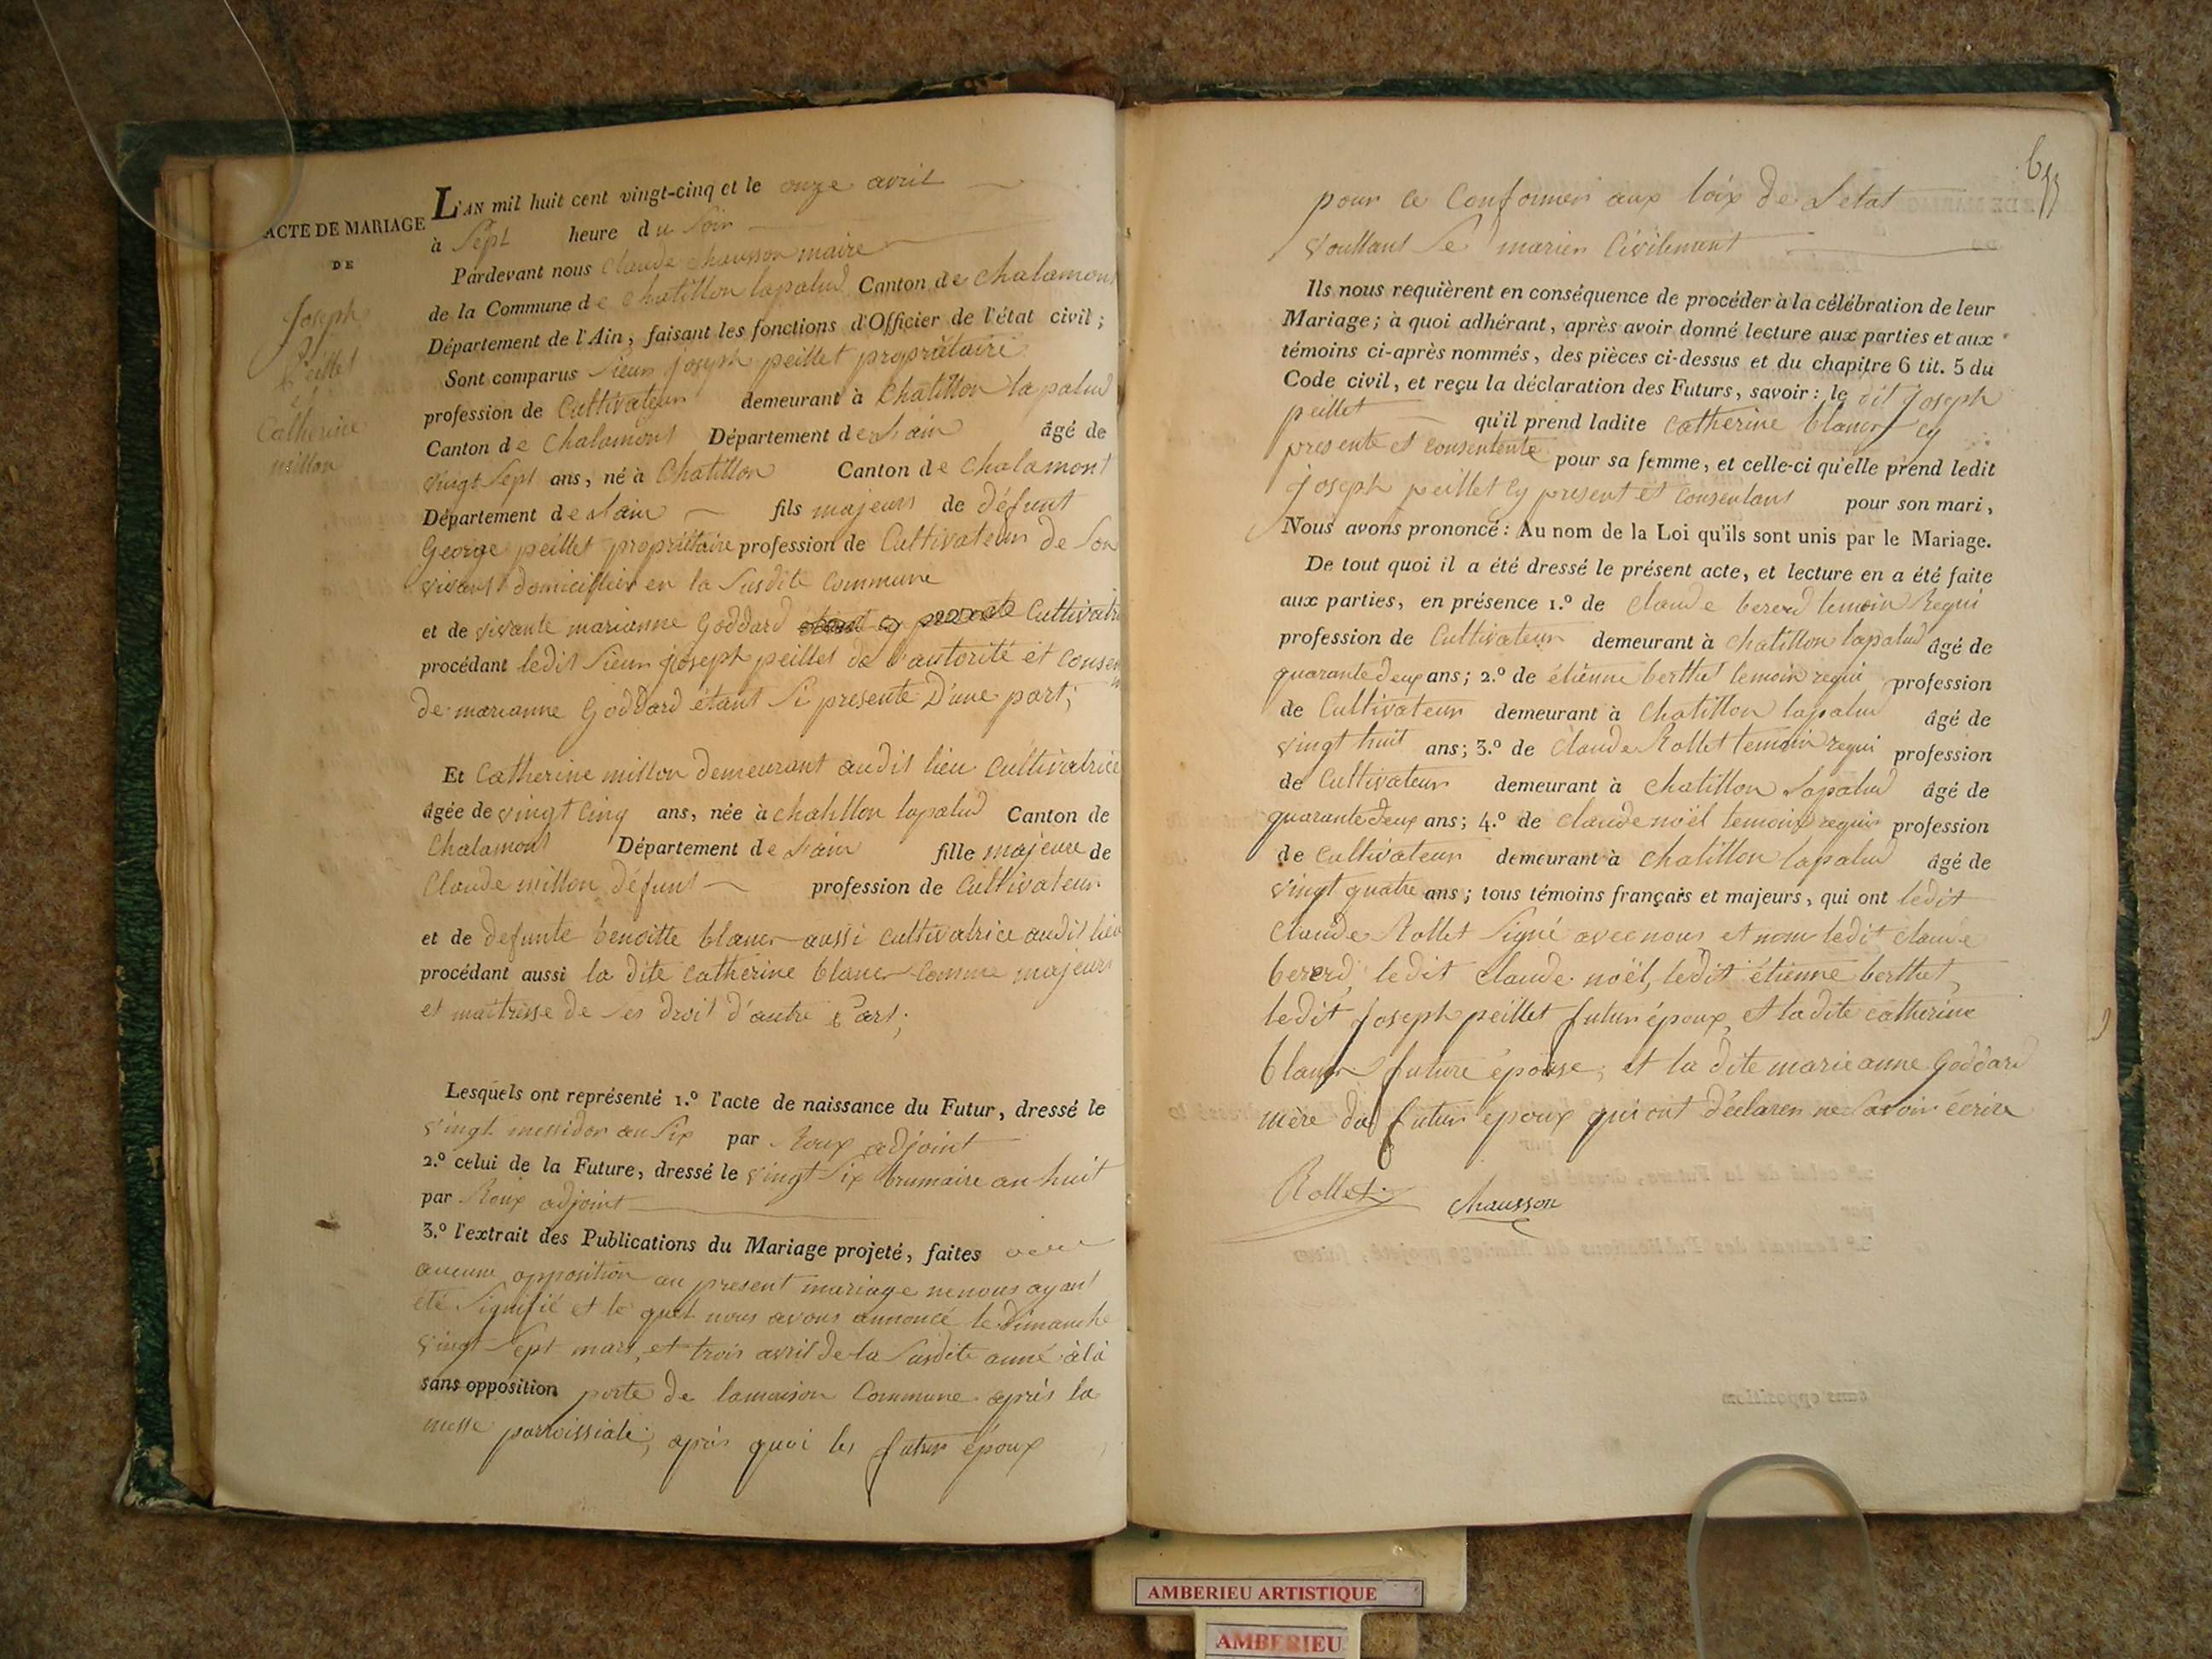 ACTE DE MARIAGE
DE
Joseph
Peillet
et
Catherine
millon
L'AN mil huit cent vingt-cinq et le onze avril
à Sept heure du Soir
Pardevant nous Claude chausson maire
de la Commune de chatillon lapalud Canton de chalamont
Département de l'Ain, faisant les fonctions d'Officier de l'état civil;
Sont comparus Sieur joseph peillet propriétaire
profession de Cultivateur demeurant à Chatillon la palud
Canton de chalamont Département de Lain âgé de
vingt Sept ans, né à Chatillon Canton de chalamont
Département de Lain fils majeur de défunt
George peillet propriétaire profession de Cultivateur de Son
vivant domicillier en la Susdite Commune
et de vivante marianne Goddard Cultivatri
procédant ledit Sieur joseph peillet de l'autorité et Consen
de marianne Goddard étant Si presente D'une part;
Et Catherine millon demeurant audit lieu Cultivatrice
âgée de vingt Cinq ans, née à chatillon lapalud Canton de
Chalamont Département de Lain fille majeure de
Claude millon défunt profession de Cultivateur
et de defunte benoitte blanc aussi cultivatrice audit lieu
procédant aussi la dite catherine blanc Comme majeure
et maitrisse de Ses droit d'autre Part;
Lesquels ont représenté 1.º l'acte de naissance du Futur, dressé le
vingt messidor an Six par Roux adjoint
2.º celui de la Future, dressé le vingt Six brumaire an huit
par Roux adjoint
3.º l'extrait des Publications du Mariage projeté, faites
aucune opposition au present mariage ne nous ayant
été Signifié et le quel nous avons annoncé le Dimanche
vingt Sept mars, et trois avril de la Susdite anné à la
sans opposition porte de lamaison Commune après la
messe parroissiale; après quoi les futur époux
pour ce Conformer aux loix de Letat
voullant Se marier Civilement
Ils nous requièrent en conséquence de procéder à la célébration de leur
Mariage; à quoi adhérant, après avoir donné lecture aux parties et aux
témoins ci-après nommés, des pièces ci-dessus et du chapitre 6 tit. 5 du
Code civil, et reçu la déclaration des Futurs, savoir: le dit joseph
peillet qu'il prend ladite catherine blanc cy
presente et consentente pour sa femme, et celle-ci qu'elle prend ledit
joseph peillet cy present et consentant pour son mari,
Nous avons prononcé: Au nom de la Loi qu'ils sont unis par le Mariage.
De tout quoi il a été dressé le présent acte, et lecture en a été faite
aux parties, en présence 1.º de Claude bererd temoin Requi
profession de Cultivateur demeurant à chatillon lapalud âgé de
quarante deux ans; 2.º de étienne berthet temoin requi profession
de Cultivateur demeurant à Chatillon lapalud âgé de
vingt huit ans; 3.º de Claude Rollet temoin requi profession
de Cultivateur demeurant à chatillon Lapalud âgé de
quarante deux ans; 4.º de claude noël temoin requis profession
de Cultivateur demeurant à chatillon lapalud âgé de
vingt quatre ans; tous témoins français et majeurs, qui ont ledit
Claude Rollet Signé avec nous et non ledit claude
bererd, ledit Claude noël, ledit étienne berthet,
ledit joseph peillet futur époux, et ladite catherine
blanc future épouse, et la dite marieanne Goddard
mère du futur époux qui ont déclaren ne Savoir écrire
Rollet chausson
AMBERIEU ARTISTIQUE
AMBERIEU